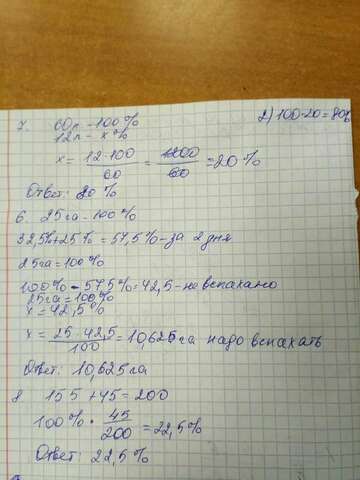 7. 60л - 100%
12л - x%
2) 100-20=80%
x = 12·100/60 = 1200/60 = 20%
Ответ: 20%
6. 25га - 100%
32,5%+25% = 57,5% - за 2 дня
25га = 100%
100% - 57,5% = 42,5 - не вспахано
25га = 100%
x = 42,5%
x = 25·42,5/100 = 10,625га надо вспахать
Ответ: 10,625га
8 155 + 45 = 200
100% · 45/200 = 22,5%
Ответ: 22,5%